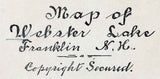 Map of
Webster Lake
Franklin N.H.
Copyright Secured.